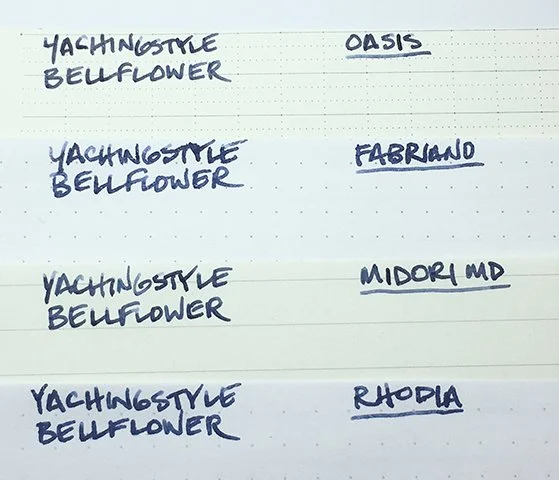 YACHINGSTYLE OASIS
BELLFLOWER
YACHINGSTYLE FABRIANO
BELLFLOWER
YACHINGSTYLE MIDORI MD
BELLFLOWER
YACHINGSTYLE RHODIA
BELLFLOWER